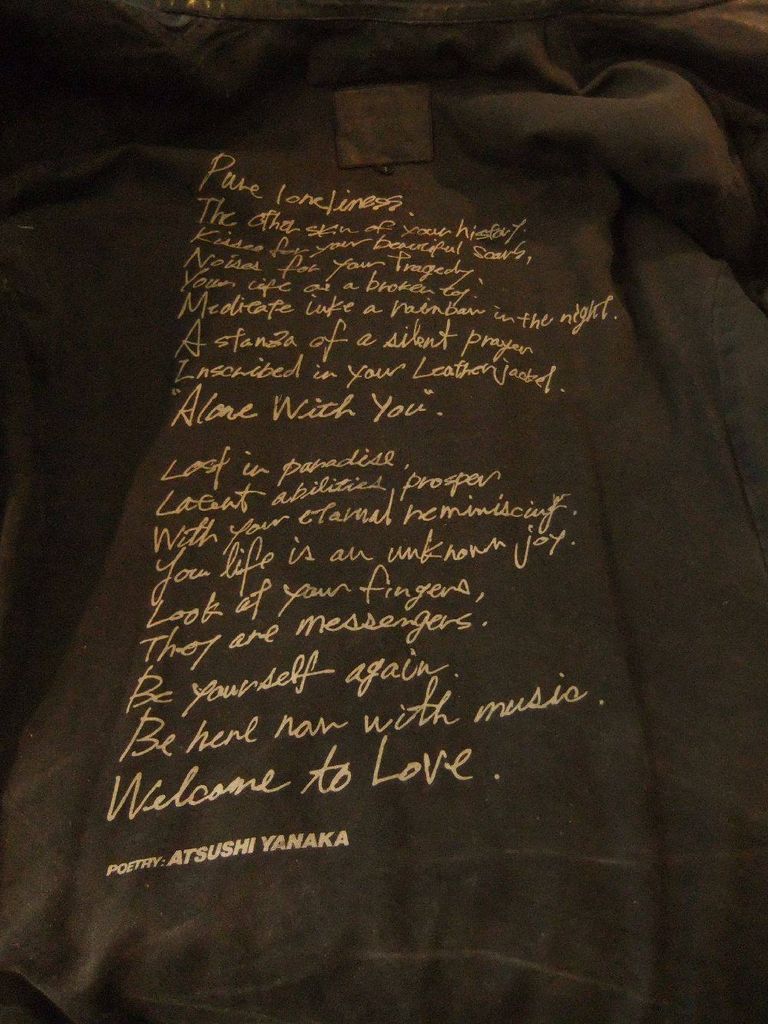 Pure loneliness.
The other skin of your history.
Kisses for your beautiful scars,
Noises for your Tragedy.
Your life as a broken
Meditate like a rainbow in the night.
A stanza of a silent prayer
Inscribed in your Leather jacket.
"Alone With You".
Lost in paradise,
Latent abilities prosper
With your eternal reminiscing.
Your life is an unknown joy.
Look at your fingers,
They are messengers.
Be yourself again.
Be here now with music.
Welcome to Love.
POETRY: ATSUSHI YANAKA